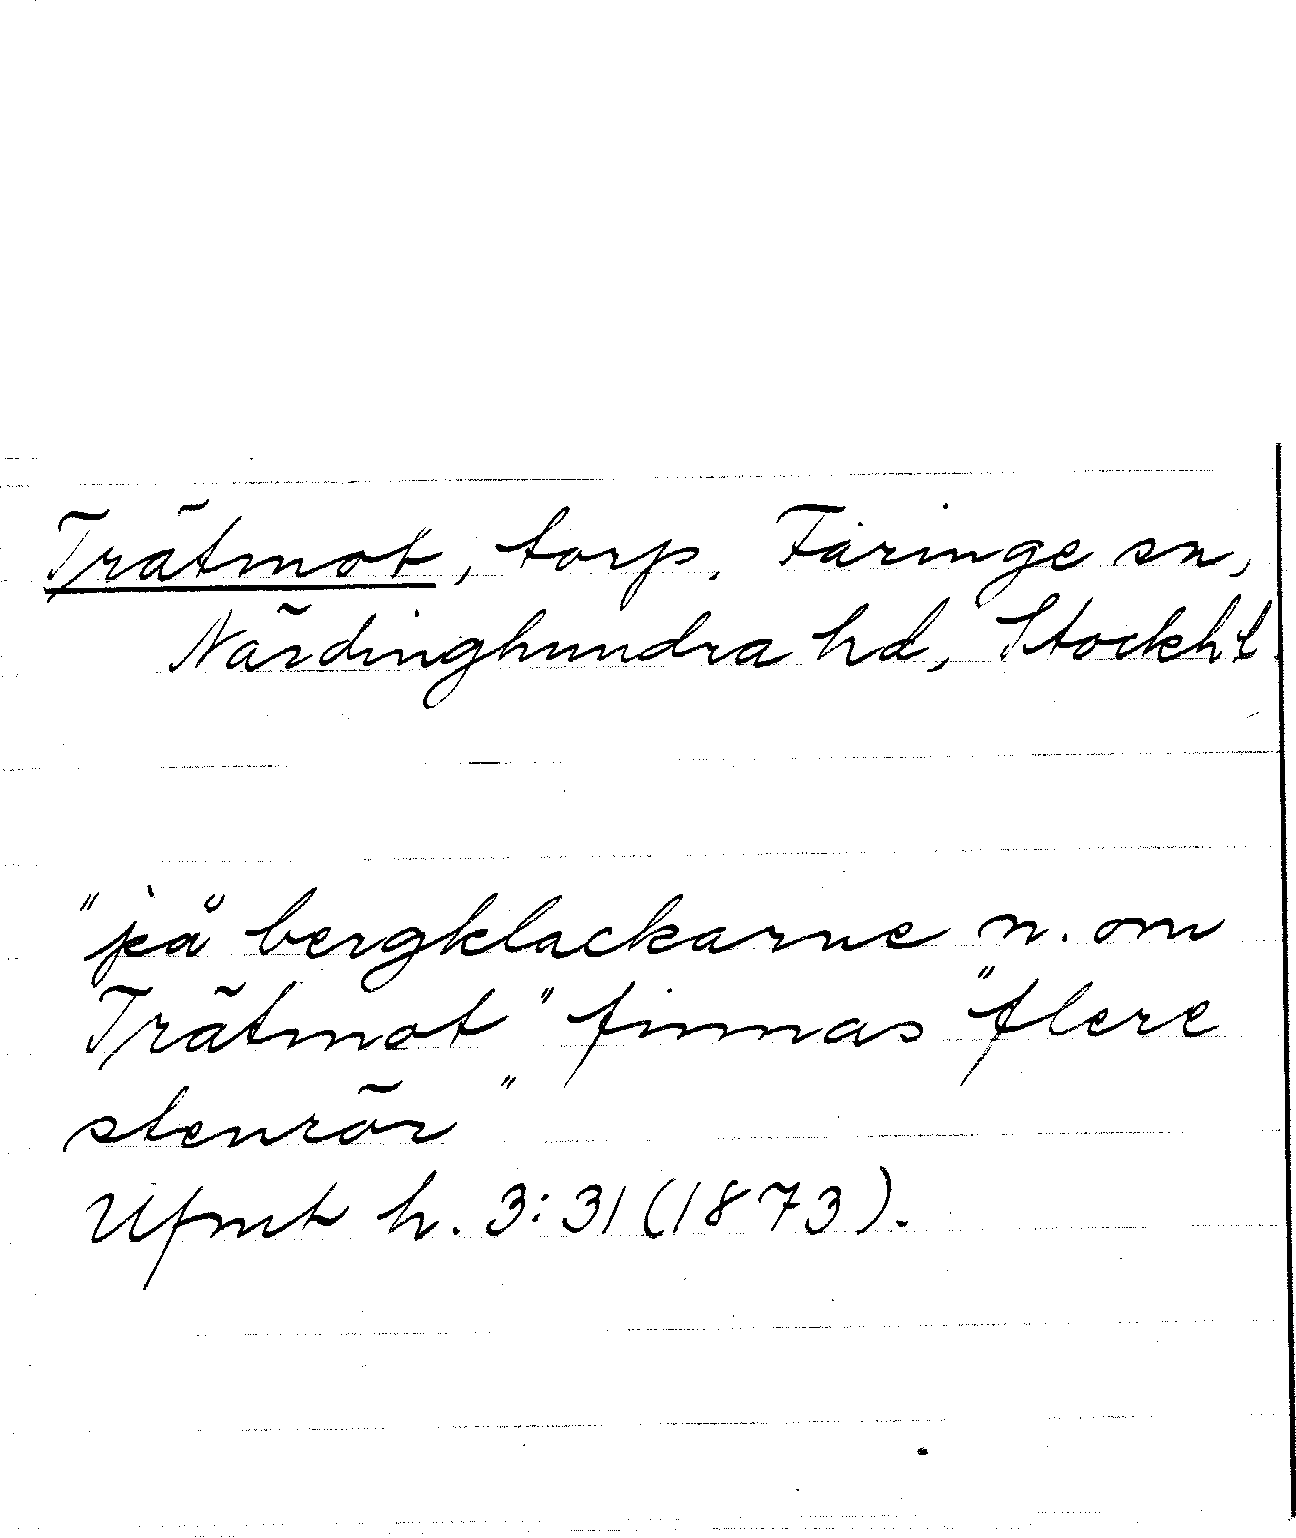 Trätmot, torp, Färinge sn,
Närdinghundra hd, Stockh.l.
"på bergklackarne n. om
Trätmot" finnas "flere
stenrör"
Ufmt h. 3:31 (1873).